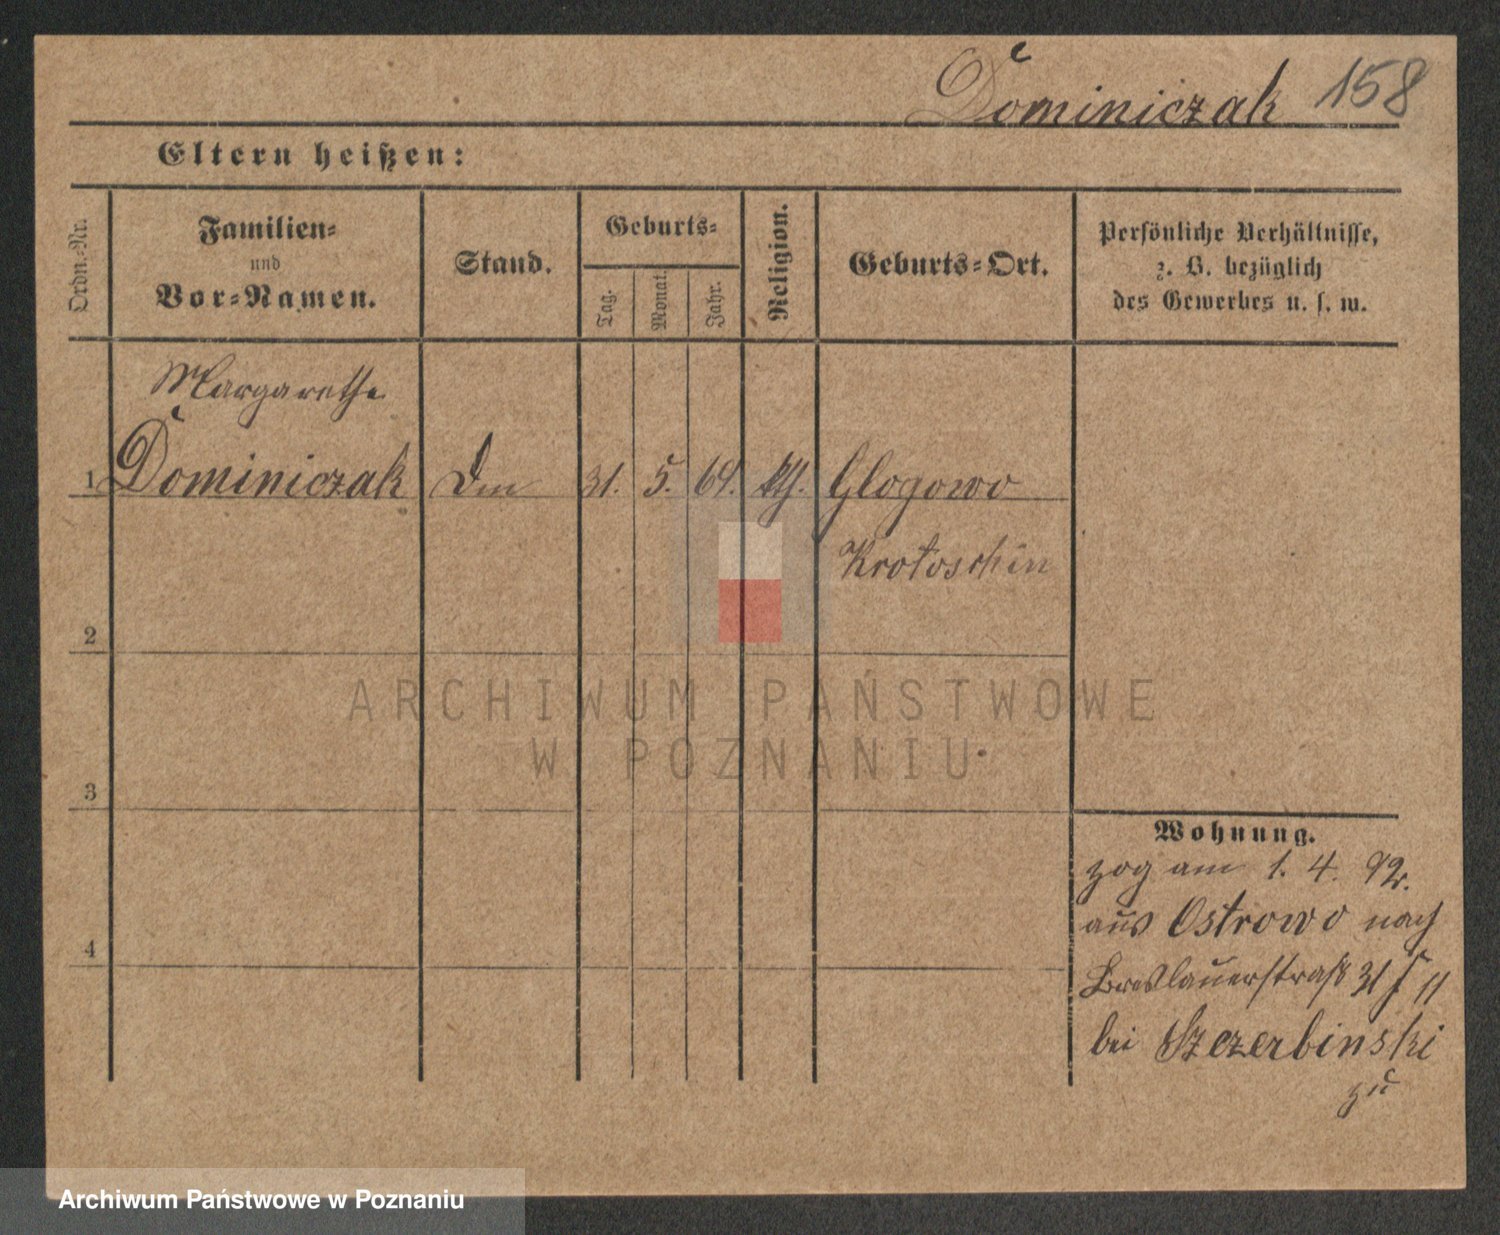 Dominiczak 158
Eltern heißen:
Ordn.-Nr.
Familien-
und
Vor-Namen.
Stand.
Geburts-
Tag.
Monat.
Jahr.
Religion.
Geburts-Ort.
Persönliche Verhältnisse,
z. B. bezüglich
des Gewerbes u. s. w.
Margarethe
1 Dominiczak 31. 5. 64. kth. Glogowo
Krotoschin
2
3
4
Wohnung.
zog am 1. 4. 92.
aus Ostrowo nach
Breslauerstraß 31 II
bei Szczerbinski
zu
ARCHIWUM PAŃSTWOWE
W POZNANIU
Archiwum Państwowe w Poznaniu